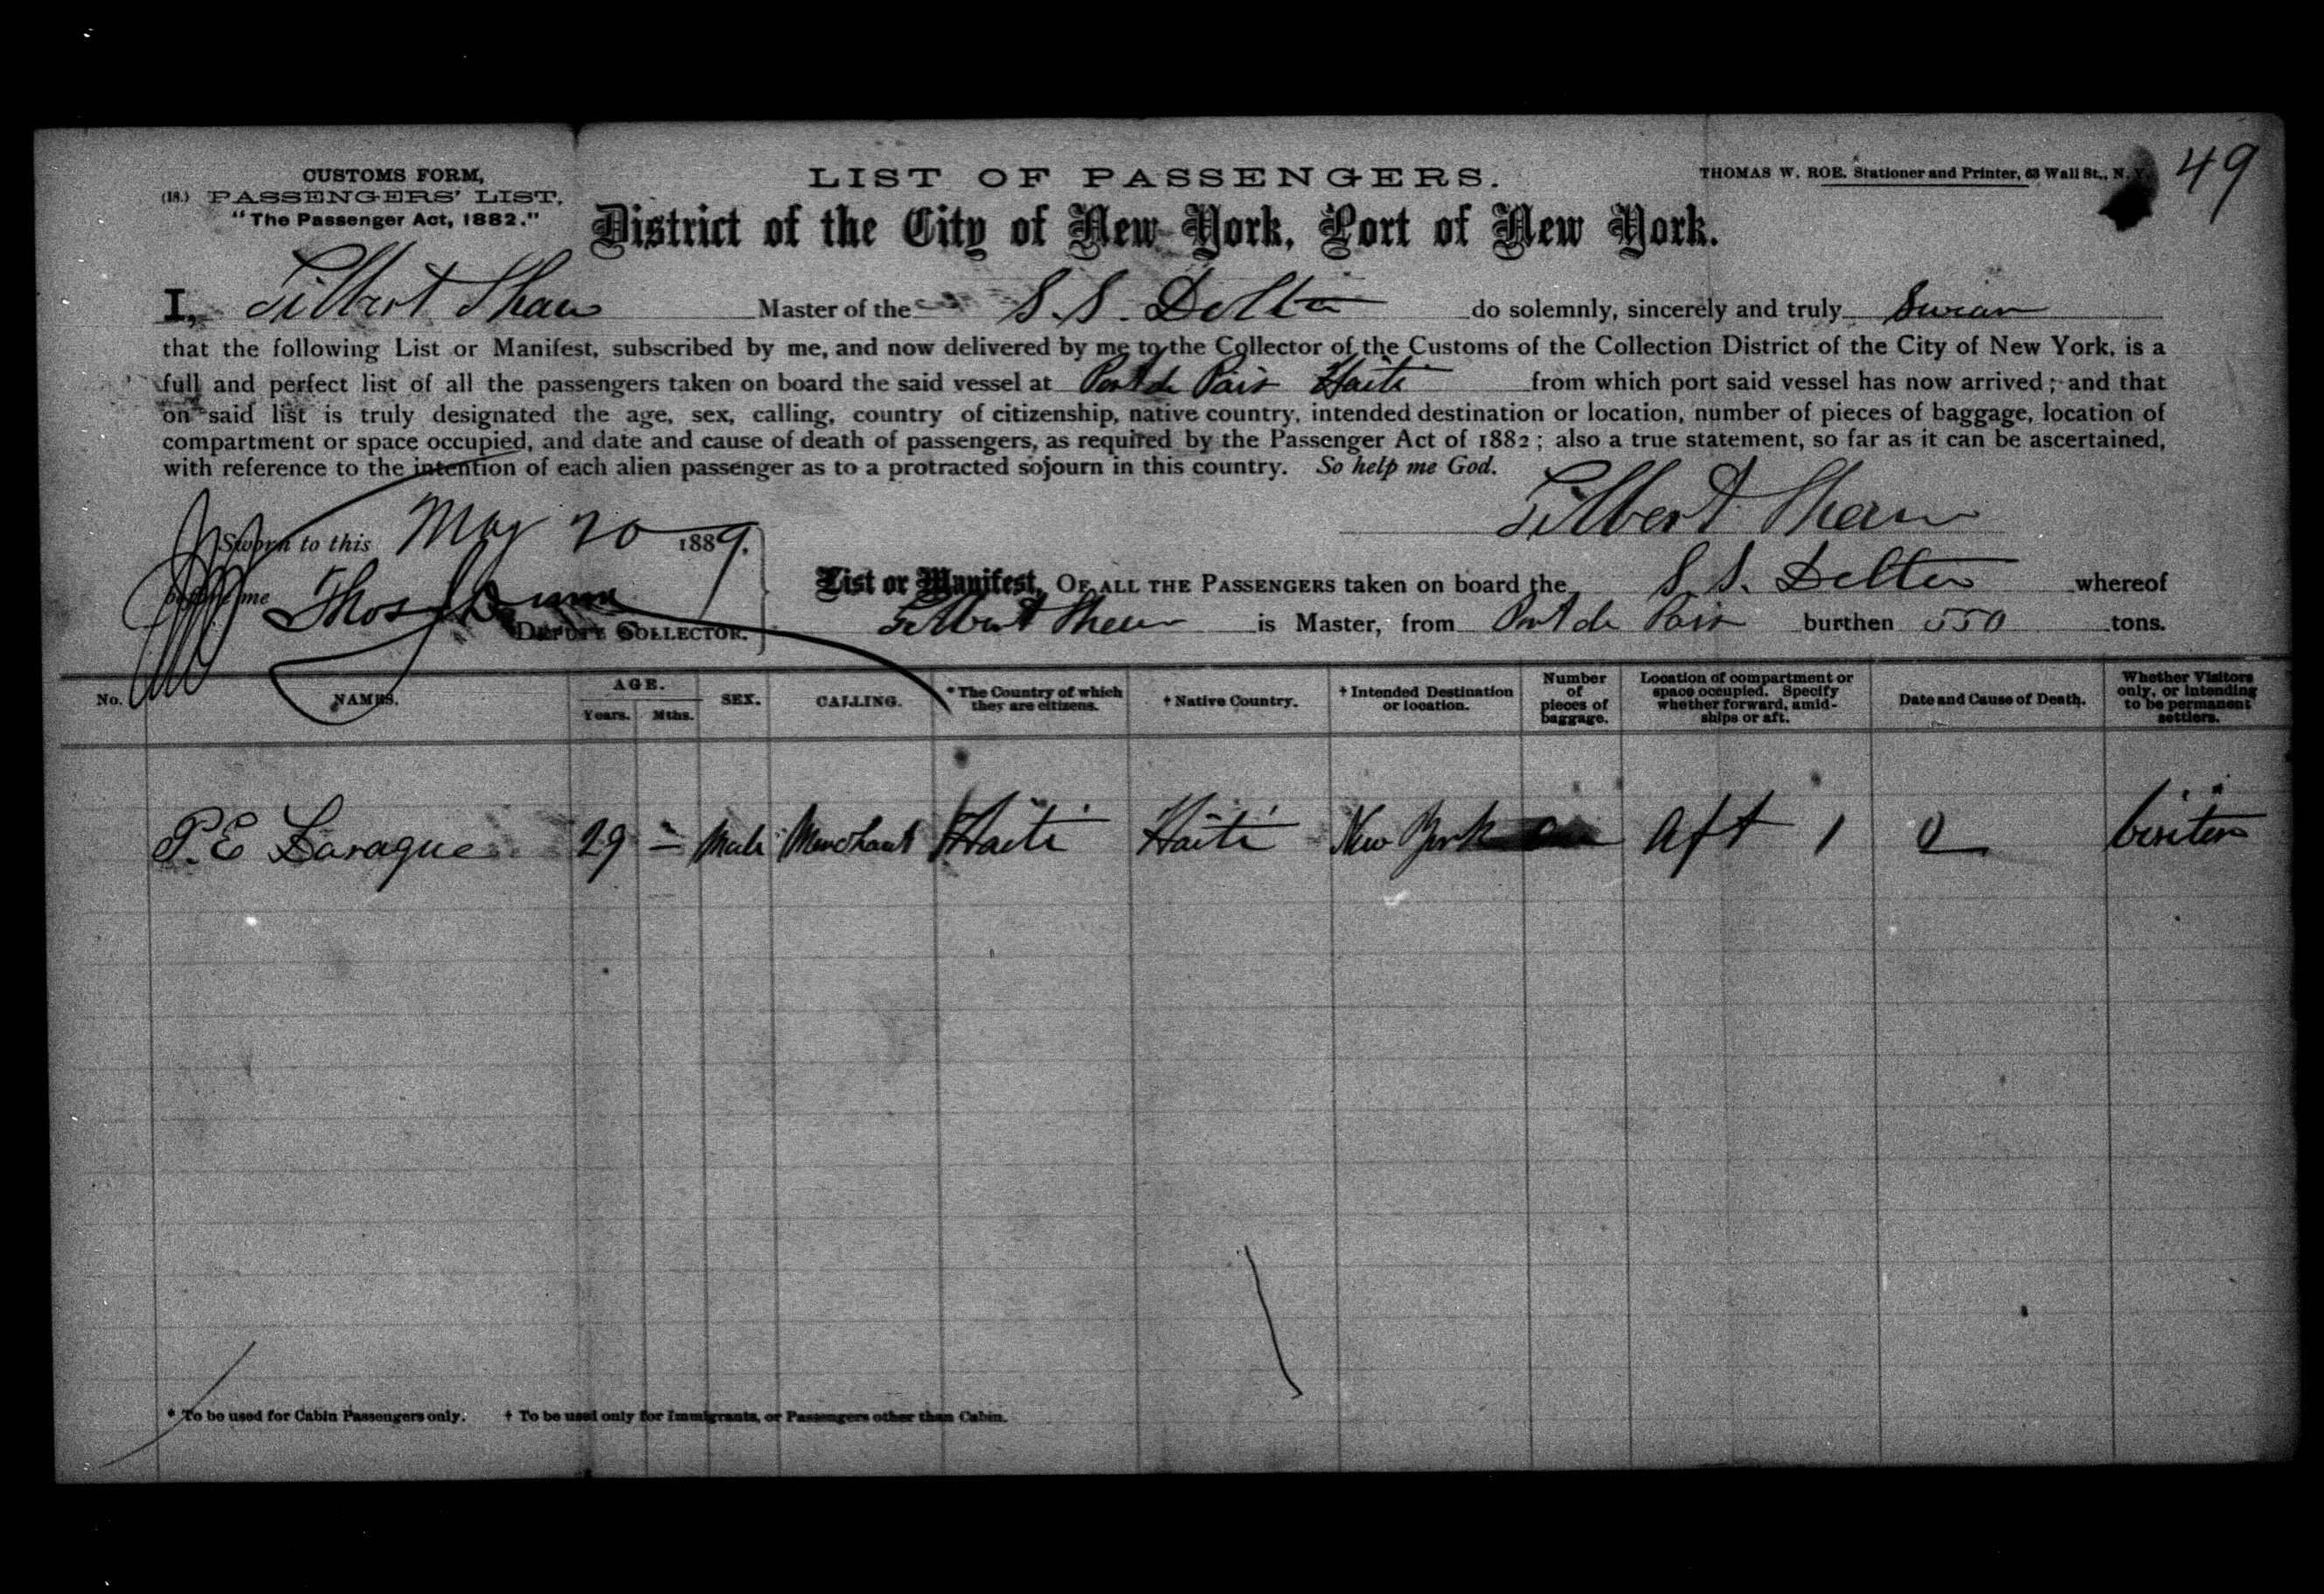 49
CUSTOMS FORM,
(18.) PASSENGERS' LIST,
"The Passenger Act, 1882."
LIST OF PASSENGERS.
THOMAS W. ROE. Stationer and Printer, 63 Wall St., N. Y.
District of the City of New York, Port of New York.
I, Gilbert Shaw Master of the S.S. Delta do solemnly, sincerely and truly Swear
that the following List or Manifest, subscribed by me, and now delivered by me to the Collector of the Customs of the Collection District of the City of New York, is a
full and perfect list of all the passengers taken on board the said vessel at Port de Paix Haiti from which port said vessel has now arrived; and that
on said list is truly designated the age, sex, calling, country of citizenship, native country, intended destination or location, number of pieces of baggage, location of
compartment or space occupied, and date and cause of death of passengers, as required by the Passenger Act of 1882; also a true statement, so far as it can be ascertained,
with reference to the intention of each alien passenger as to a protracted sojourn in this country. So help me God.
Gilbert Shaw
Sworn to this May 20 1889.
before me Thos Dunn
DEPUTY COLLECTOR.
List or Manifest, OF ALL THE PASSENGERS taken on board the S S. Delta whereof
Gilbert Shaw is Master, from Port de Paix burthen 550 tons.
No. NAMES. AGE. Years. Mths. SEX. CALLING. * The Country of which they are citizens. † Native Country. † Intended Destination or location. Number of pieces of baggage. Location of compartment or space occupied. Specify whether forward, amidships or aft. Date and Cause of Death. Whether Visitors only, or intending to be permanent settlers.
P. E Laraque 29 = Male Merchant Haiti Haiti New York Aft 1 0 Visiter
* To be used for Cabin Passengers only. † To be used only for Immigrants, or Passengers other than Cabin.